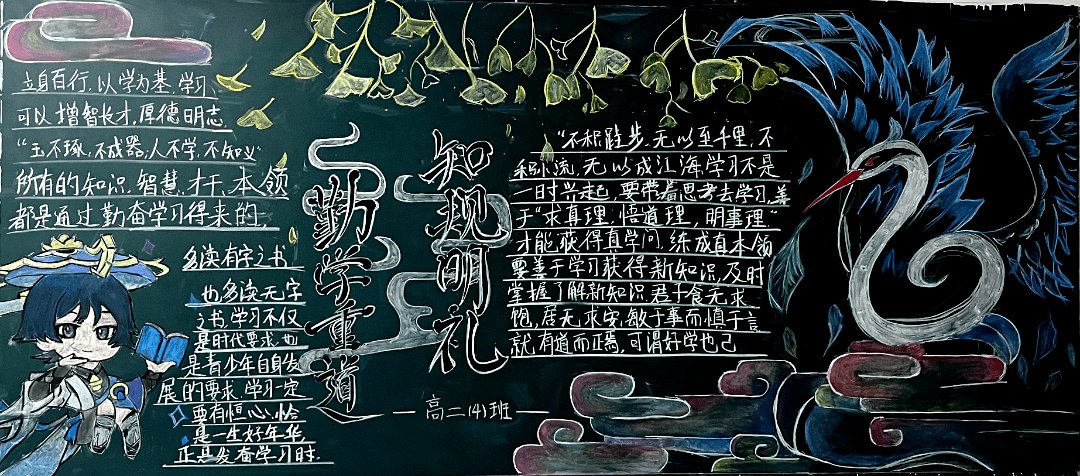 立身百行,以学为基,学习、
可以增智长才,厚德明志,
“玉不琢,不成器;人不学,不知义”
所有的知识、智慧、才干、本领
都是通过勤奋学习得来的,
多读有字之书
也多读无字
之书,学习不仅
是时代要求,也
是青少年自身发
展的要求,学习一定
要有恒心,恰
是一生好年华,
正是发奋学习时.
勤学重道
知现明礼
高二(4)班
“不积跬步,无以至千里,不
积小流,无以成江海”学习不是
一时兴起,要带着思考去学习,善
于“求真理、悟道理、明事理”
才能获得真学问,练成真本领
要善于学习获得新知识,及时
掌握了解新知识,君子食无求
饱,居无求安,敏于事而慎于言
就有道而正焉,可谓好学也已